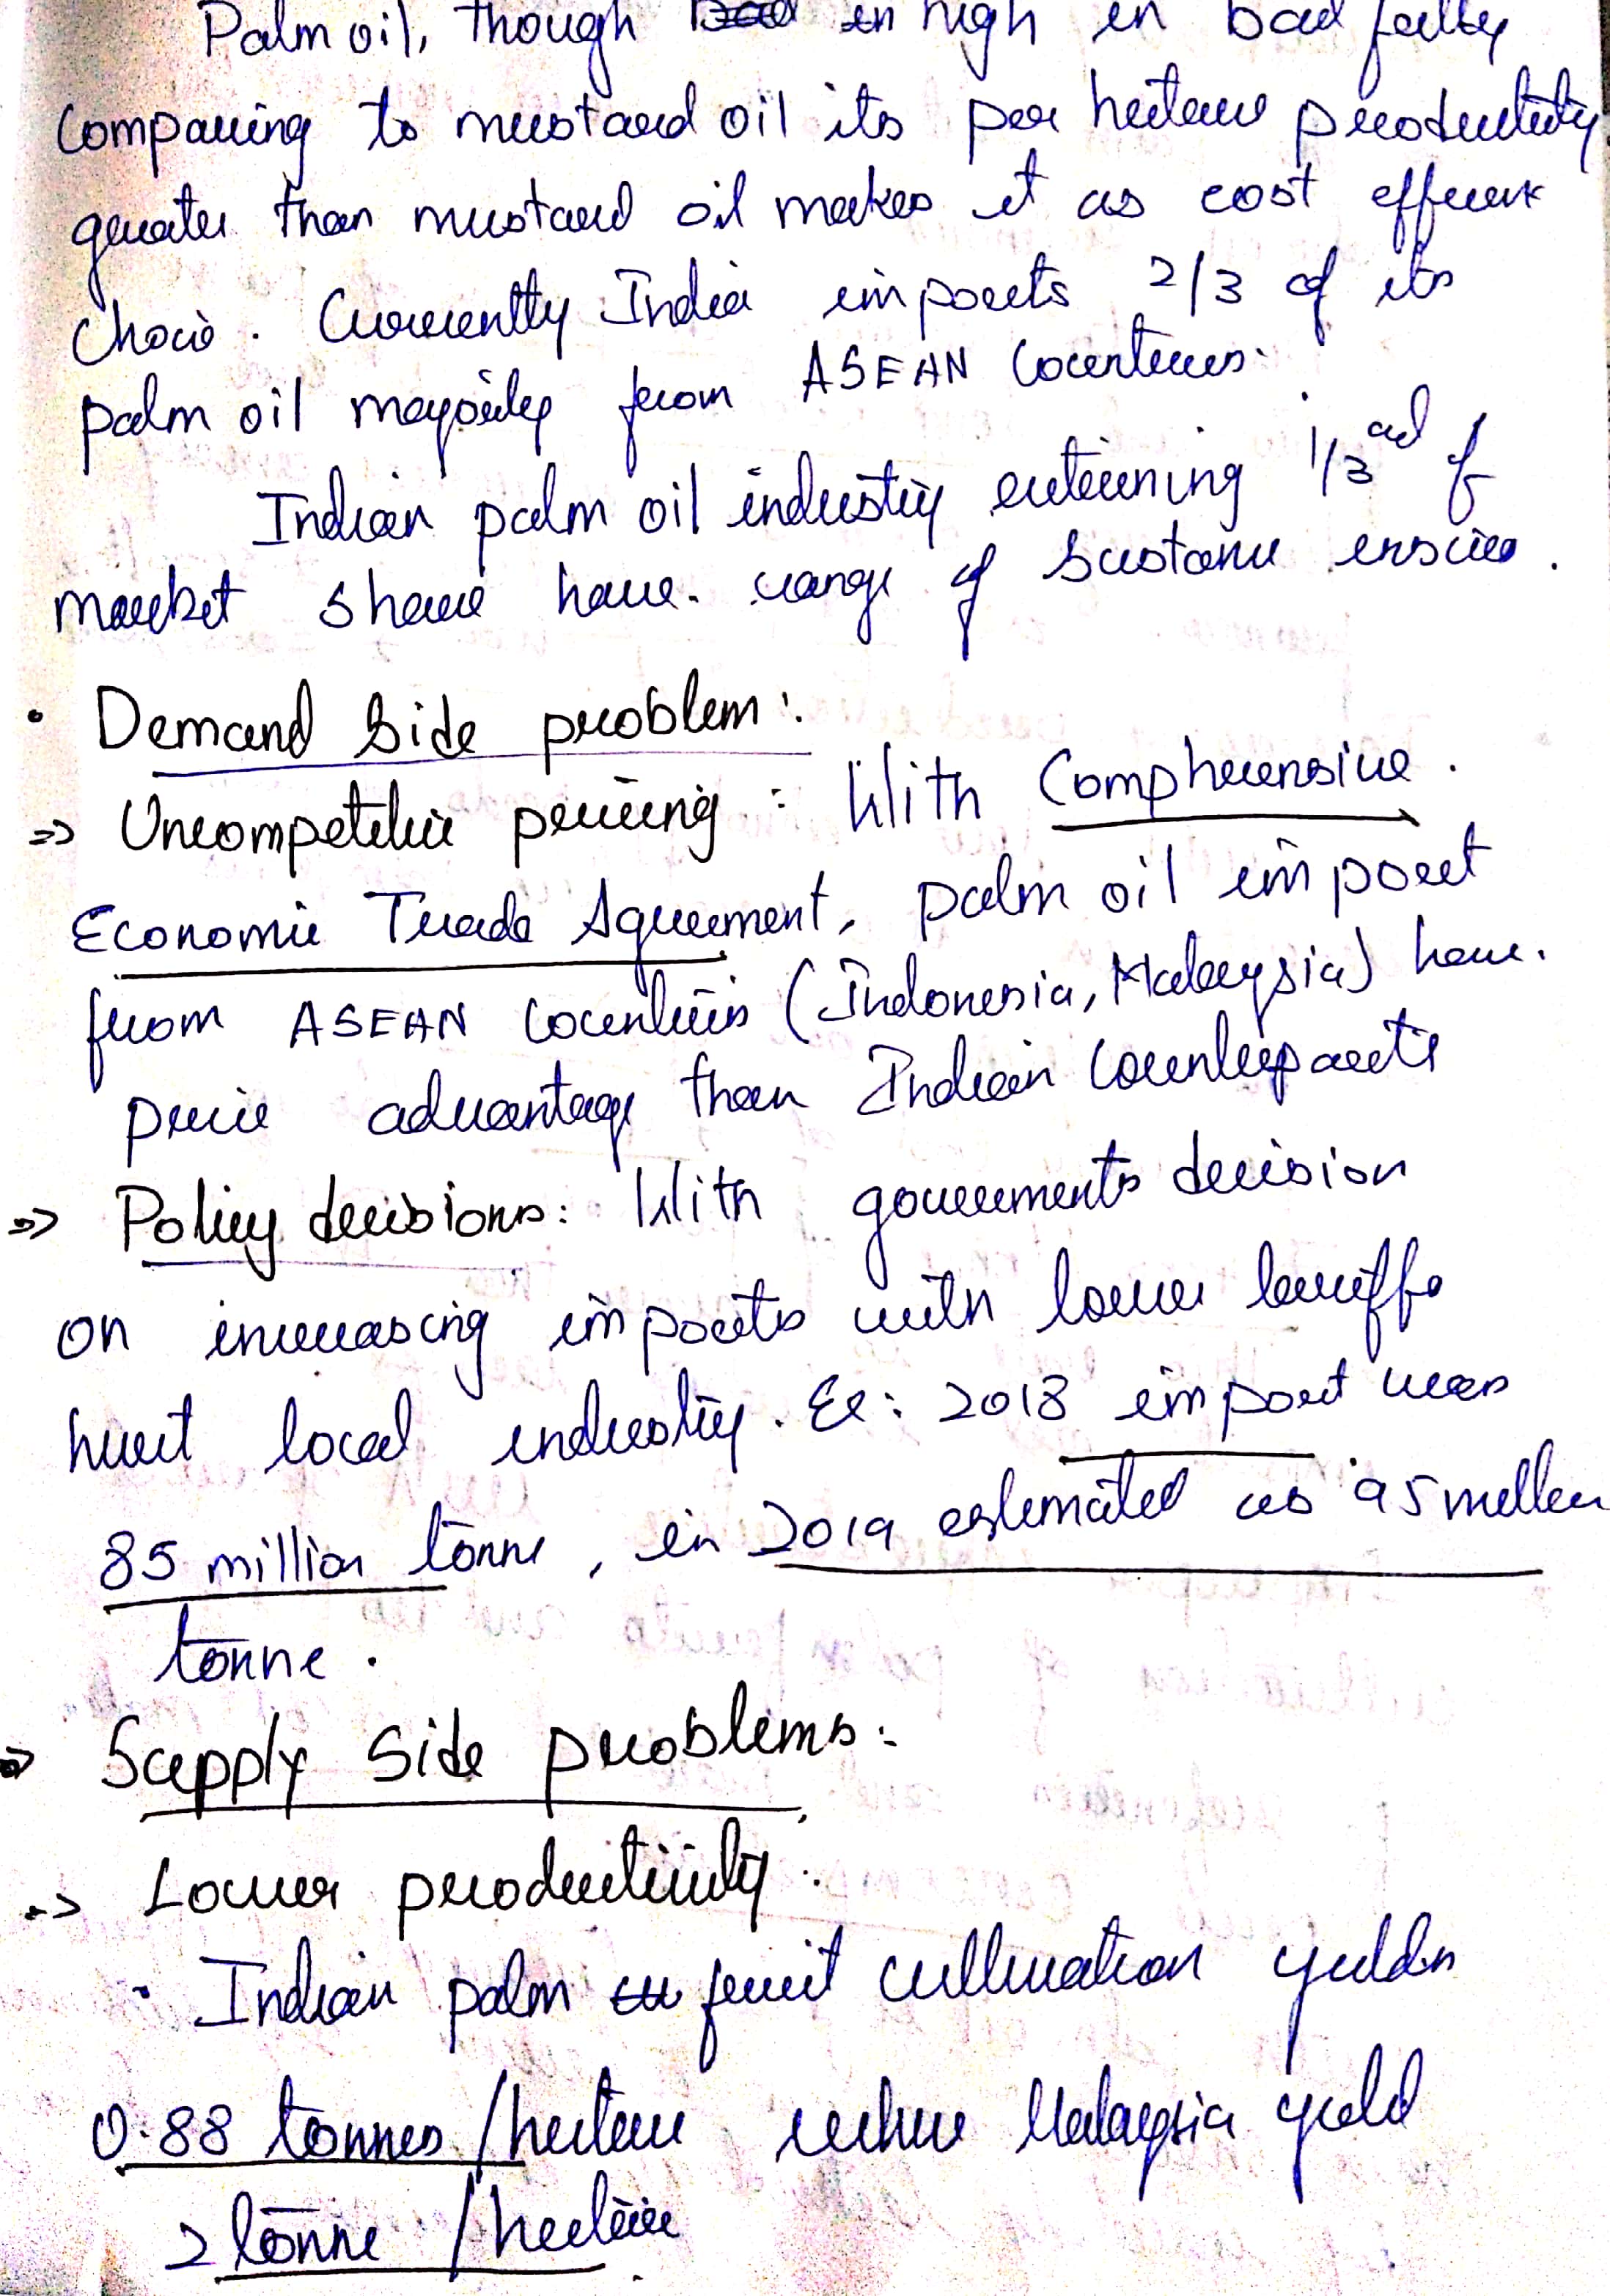 Palm oil, though in high in bad fatty
Comparing to mustard oil its per hectare productivity
greater than mustard oil makes it as cost efficient
choice. Currently India imports 2/3 of its
palm oil majority from ASEAN Countries.
Indian palm oil industry entering 1/3rd of
market share have range of issues.
• Demand Side problem:
=> Uncompetitive pricing: With Comphrerensive
Economic Trade Agreement, palm oil import
from ASEAN Countries (Indonesia, Malaysia) have
price advantage than Indian Counterparts
=> Policy decisions: With governments decision
on increasing imports with lower tariffs
hurt local industry. Ex: 2018 import was
85 million tonne, in 2019 estimated as 95 million
tonne.
=> Supply Side problems:
=> Lower productivity:
• Indian palm fruit cultivation yields
0.88 tonnes/hectare where Malaysia yield
2 tonne/hectare